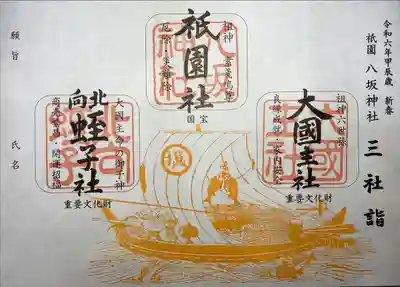 令和六年甲辰歳 新春
祇園 八坂神社 三社詣
祇園社
祖神 素戔嗚尊
厄除・災難除
国宝
大國主社
祖神六世孫
良縁成就・家内安全
重要文化財
北向蛭子社
大國主命の御子神
商売繁昌・開運招福
重要文化財
願旨
氏名